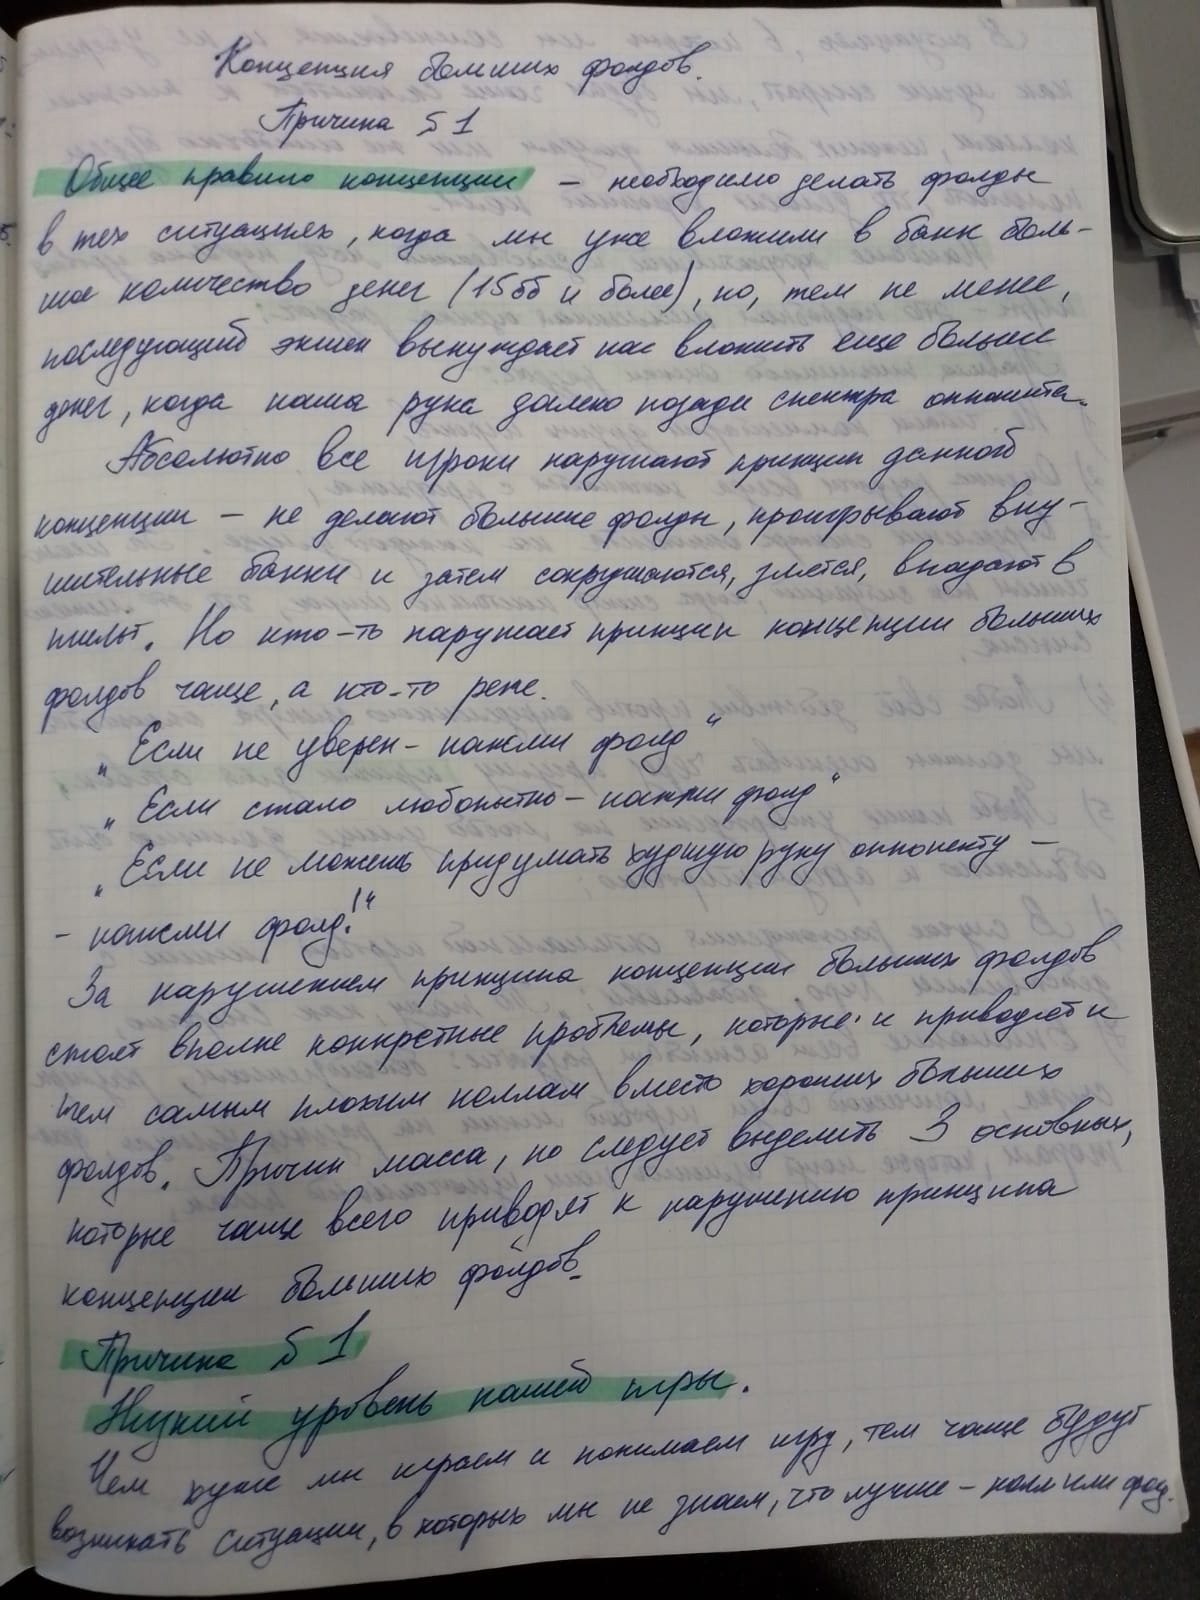 Концепция больших фолдов.
Причина № 1
Общее правило концепции – необходимо делать фолды
в тех ситуациях, когда мы уже вложили в банк боль-
шое количество денег (15бб и более), но, тем не менее,
последующий экшен вынуждает нас вложить еще больше
денег, когда наша рука далеко позади спектра оппонента.
Абсолютно все игроки нарушают принцип данной
концепции – не делают большие фолды, проигрывают вну-
шительные банки и затем сокрушаются, злятся, впадают в
тильт. Но кто-то нарушает принцип концепции больших
фолдов чаще, а кто-то реже.
„Если не уверен – нажми фолд“
„Если стало любопытно – нажми фолд“
„Если не можешь придумать худшую руку оппоненту –
– нажми фолд!“
За нарушением принципа концепции больших фолдов
стоят вполне конкретные проблемы, которые и приводят к
тем самым плохим коллам вместо хороших больших
фолдов. Причин масса, но следует выделить 3 основных,
которые чаще всего приводят к нарушению принципа
концепции больших фолдов.
Причина № 1
Низкий уровень нашей игры.
Чем хуже мы играем и понимаем игру, тем чаще будут
возникать ситуации, в которых мы не знаем, что лучше – колл или фолд.